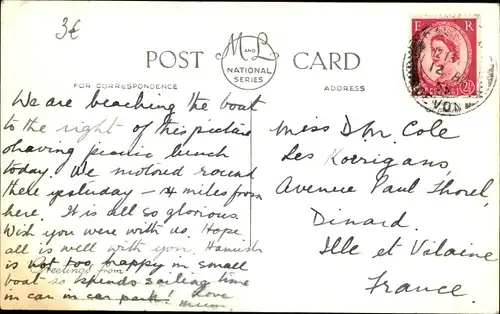 3€
M AND L
NATIONAL
SERIES
POST CARD
FOR CORRESPONDENCE
ADDRESS
E R
2½
DEVON
We are beaching the boat
to the right of this picture
& having picnic lunch
today. We motored round
there yesterday – 24 miles from
here. It is all so glorious
Wish you were with us. Hope
all is well with you. Hamish
is not too happy in small
Greetings from
boat so spends sailing time
in car in car park! Love
Mum.
Miss D M. Cole
Les Korrigans,
Avenue Paul Thorel,
Dinard.
Ille et Vilaine
France.